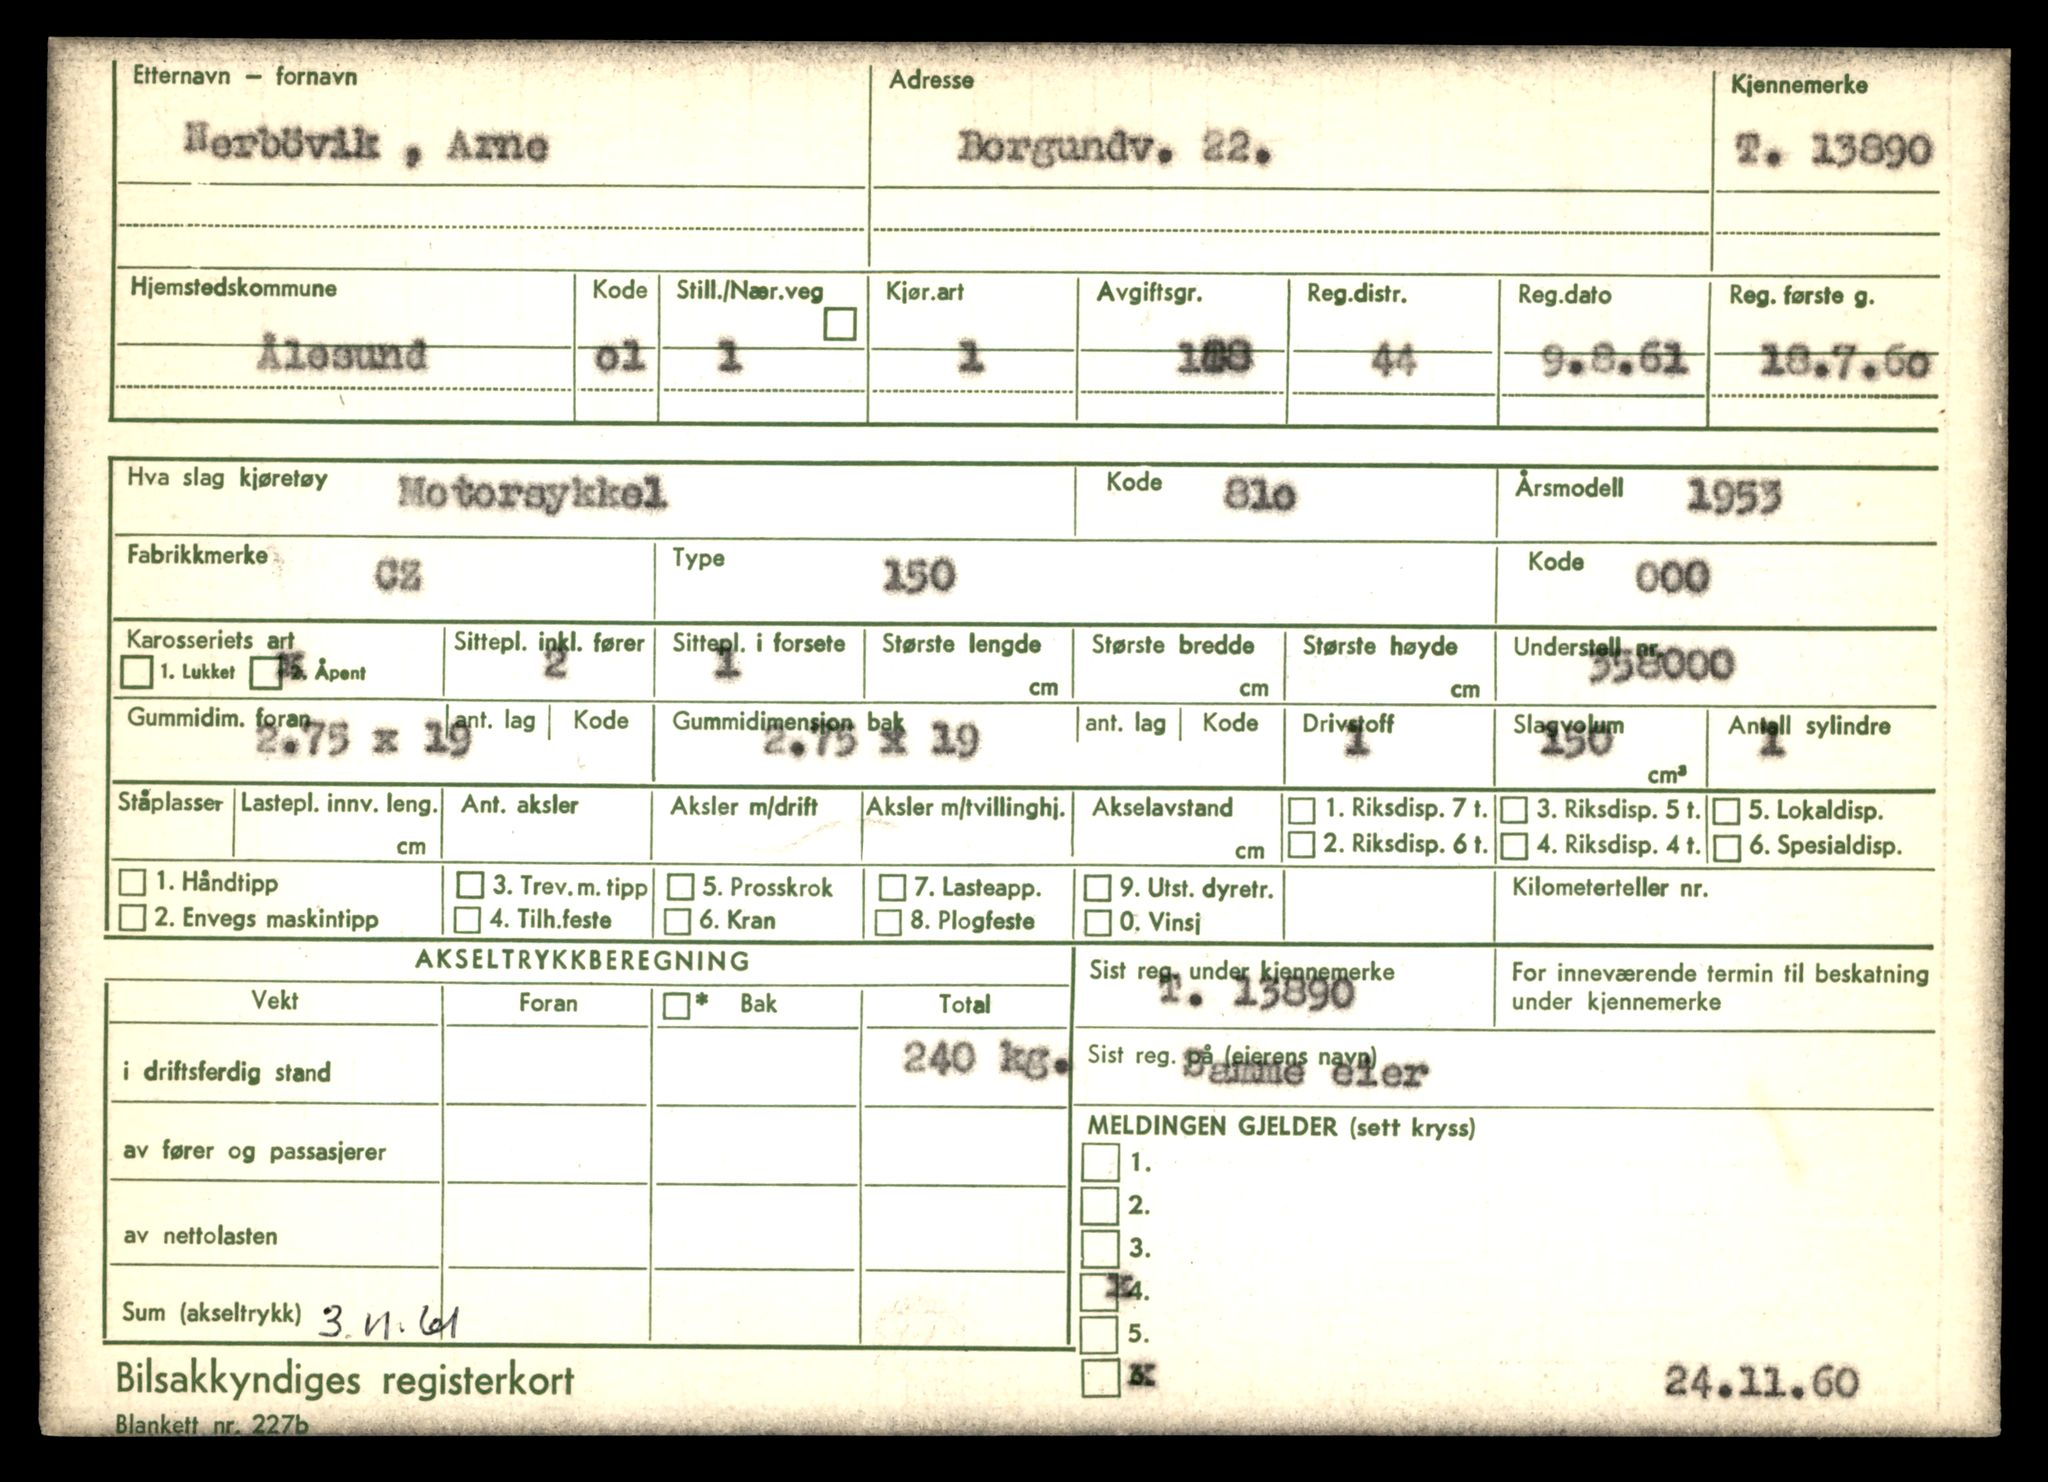 Etternavn — fornavn Adresse Kjennemerke
Nerbövik , Arne Borgundv. 22. T. 13890
Hjemstedskommune Kode Still./Nær.veg Kjør.art Avgiftsgr. Reg.distr. Reg.dato Reg. første g.
Ålesund o1 1 1 44 9.8.61 18.7.6o
Hva slag kjøretøy Motorsykkel Kode 81o Årsmodell 1953
Fabrikkmerke CZ Type 150 Kode 000
Karosseriets art Sittepl. inkl. fører Sittepl. i forsete Største lengde Største bredde Største høyde Understell nr.
1. Lukket x 2. Åpent 2 1 cm cm cm 358000
Gummidim. foran ant. lag Kode Gummidimensjon bak ant. lag Kode Drivstoff Slagvolum Antall sylindre
2.75 x 19 2.75 x 19 1 150 1
cm³
Ståplasser Lastepl. innv. leng. Ant. aksler Aksler m/drift Aksler m/tvillinghj. Akselavstand 1. Riksdisp. 7 t. 3. Riksdisp. 5 t. 5. Lokaldisp.
cm cm 2. Riksdisp. 6 t. 4. Riksdisp. 4 t. 6. Spesialdisp.
1. Håndtipp 3. Trev. m. tipp 5. Prosskrok 7. Lasteapp. 9. Utst. dyretr. Kilometerteller nr.
2. Envegs maskintipp 4. Tilh.feste 6. Kran 8. Plogfeste 0. Vinsj
AKSELTRYKKBEREGNING
Vekt Foran * Bak Total
i driftsferdig stand 240 kg.
av fører og passasjerer
av nettolasten
Sum (akseltrykk) 3.11.61
Sist reg. under kjennemerke
T. 13890
For inneværende termin til beskatning
under kjennemerke
Sist reg. på (eierens navn)
Samme eier
MELDINGEN GJELDER (sett kryss)
1.
2.
3.
x 4.
5.
x
24.11.60
Bilsakkyndiges registerkort
Blankett nr. 227b